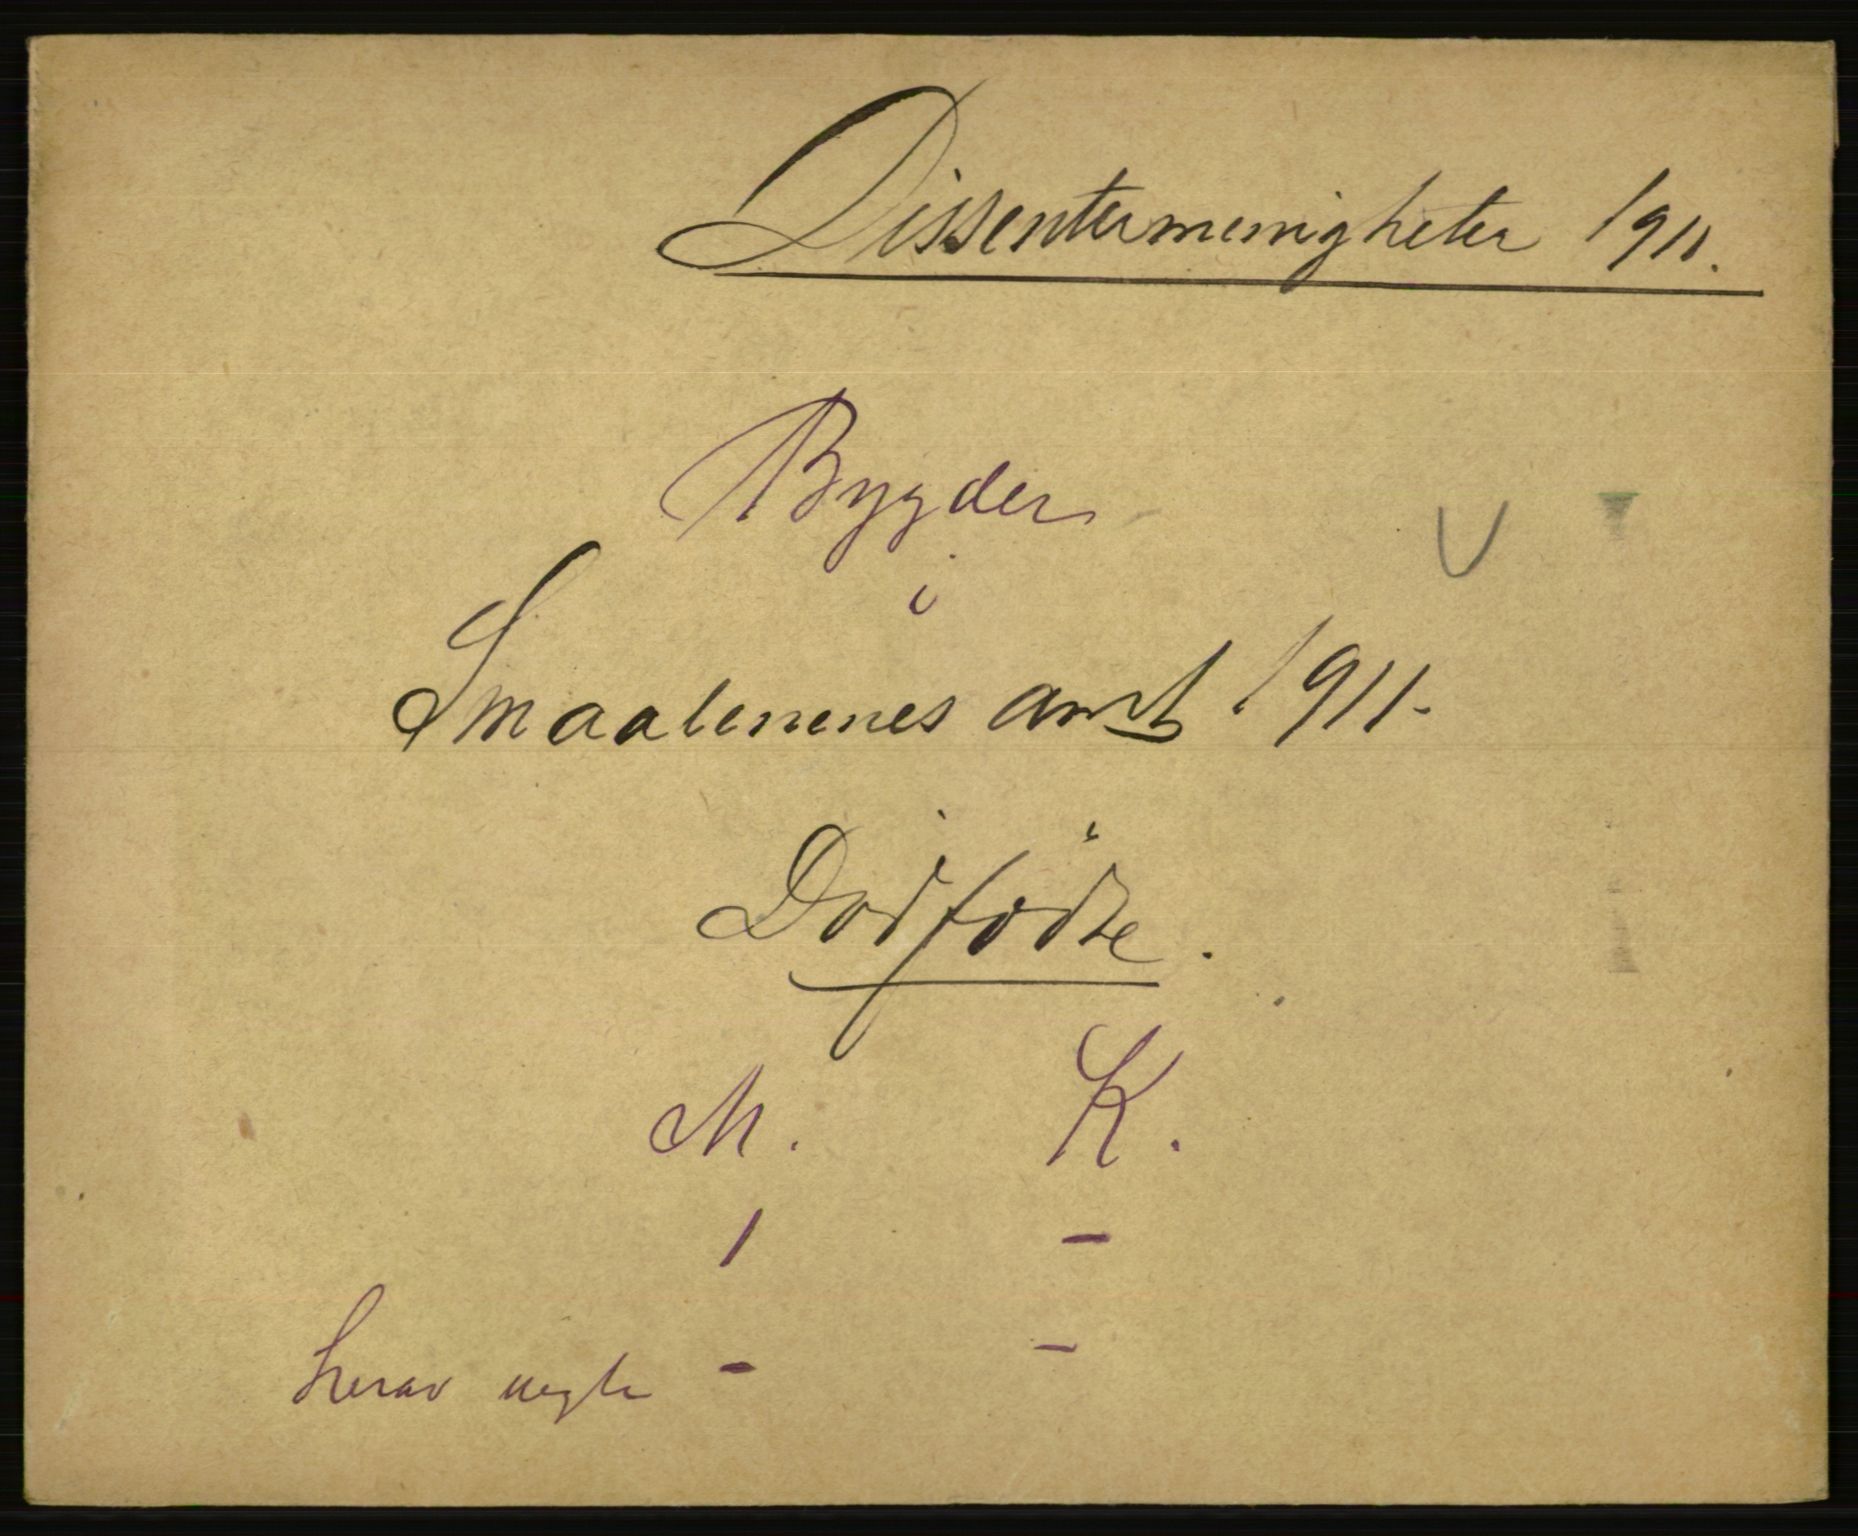 Dissentermenigheter 1911.
Bygder
i
Smaalenenes amt 1911.
Dødfødte.
M. K.
1 -
herav uegte - -